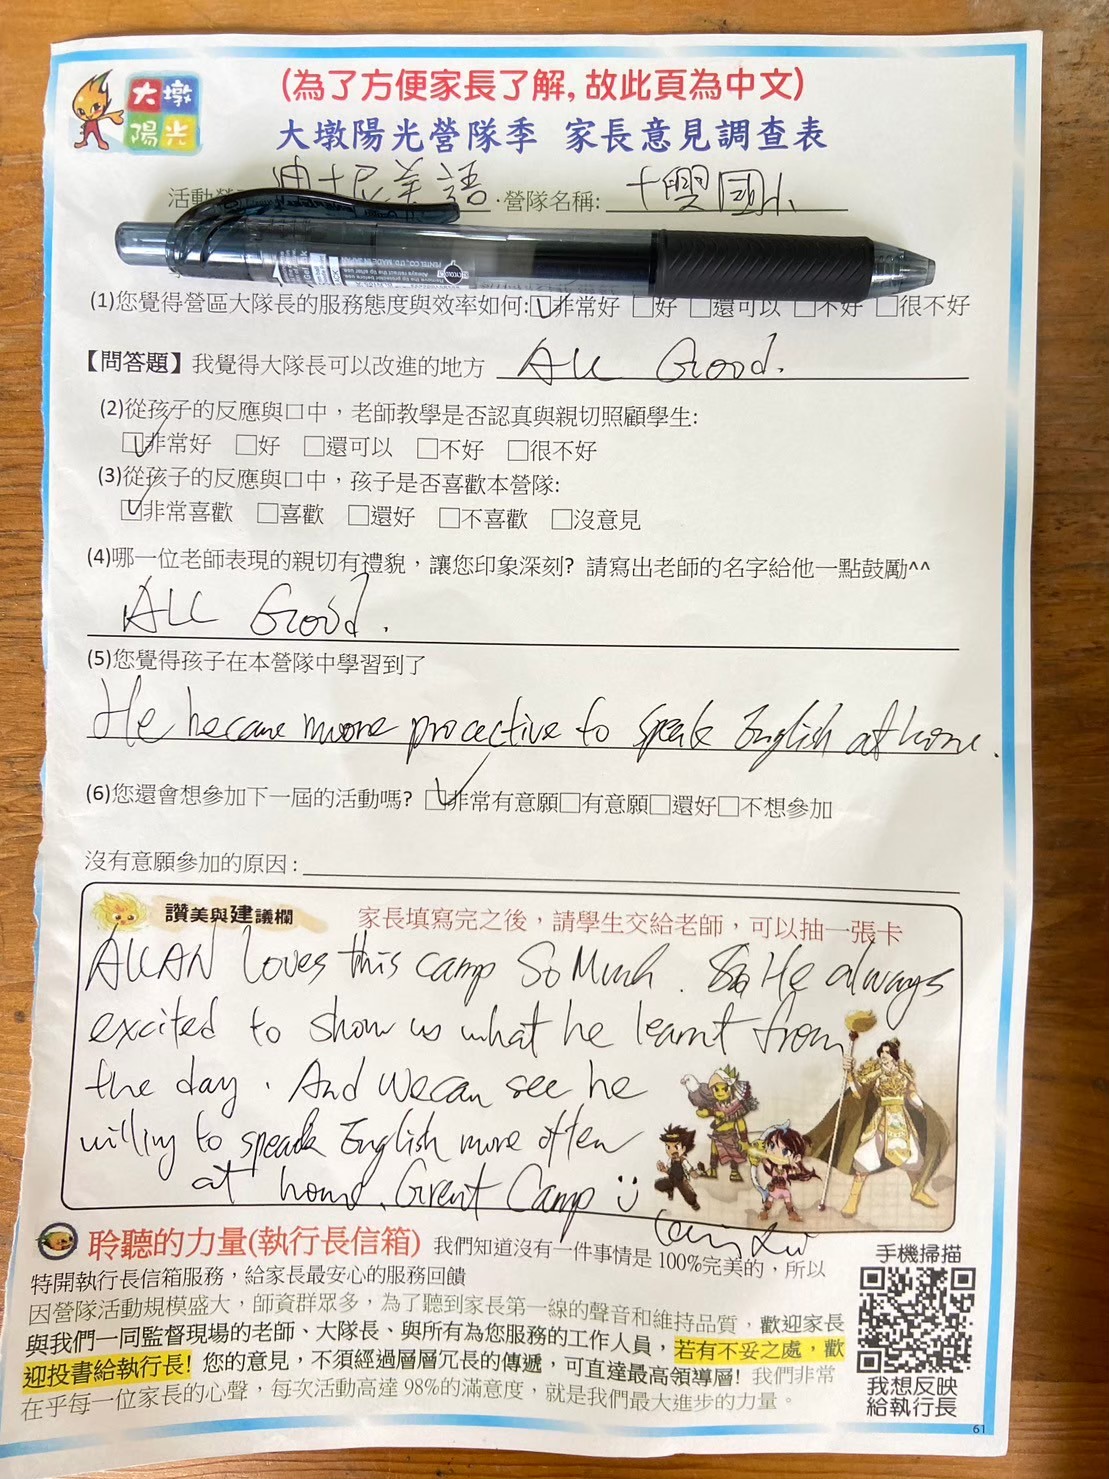 大墩
陽光
(為了方便家長了解, 故此頁為中文)
大墩陽光營隊季 家長意見調查表
活動 迪士尼美語 ·營隊名稱: 十興國小
(1)您覺得營區大隊長的服務態度與效率如何:□非常好 □好 □還可以 □不好 □很不好
【問答題】我覺得大隊長可以改進的地方 All Good.
(2)從孩子的反應與口中，老師教學是否認真與親切照顧學生:
□非常好 □好 □還可以 □不好 □很不好
(3)從孩子的反應與口中，孩子是否喜歡本營隊:
□非常喜歡 □喜歡 □還好 □不喜歡 □沒意見
(4)哪一位老師表現的親切有禮貌，讓您印象深刻? 請寫出老師的名字給他一點鼓勵^^
All Good.
(5)您覺得孩子在本營隊中學習到了
He became more procective to speak English at home.
(6)您還會想參加下一屆的活動嗎? □非常有意願□有意願□還好□不想參加
沒有意願參加的原因:
讚美與建議欄 家長填寫完之後，請學生交給老師，可以抽一張卡
ALLAN loves this camp So Much. So He always
excited to show us what he learnt from
the day. And we can see he
willing to speak English more often
at home. Great Camp
聆聽的力量(執行長信箱) 我們知道沒有一件事情是 100%完美的，所以
特開執行長信箱服務，給家長最安心的服務回饋
因營隊活動規模盛大，師資群眾多，為了聽到家長第一線的聲音和維持品質，歡迎家長
與我們一同監督現場的老師、大隊長、與所有為您服務的工作人員，若有不妥之處，歡
迎投書給執行長! 您的意見，不須經過層層冗長的傳遞，可直達最高領導層! 我們非常
在乎每一位家長的心聲，每次活動高達 98%的滿意度，就是我們最大進步的力量。
手機掃描
我想反映
給執行長
61